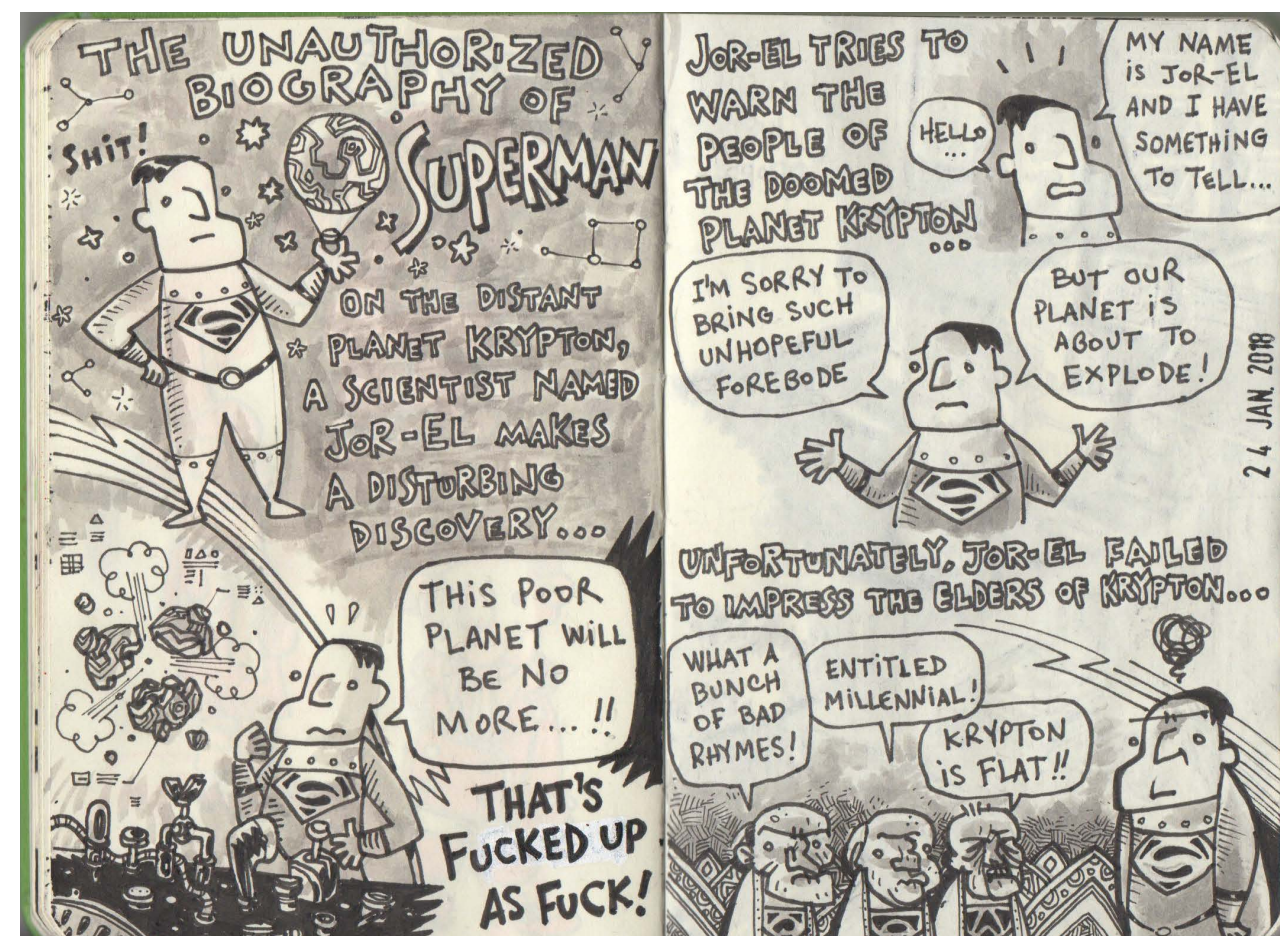 THE UNAUTHORIZED
BIOGRAPHY OF
SUPERMAN
SHIT!
ON THE DISTANT
PLANET KRYPTON,
A SCIENTIST NAMED
JOR-EL MAKES
A DISTURBING
DISCOVERY...
THIS POOR
PLANET WILL
BE NO
MORE...!!
THAT'S
FUCKED UP
AS FUCK!
JOR-EL TRIES TO
WARN THE
PEOPLE OF
THE DOOMED
PLANET KRYPTON
...
HELLO
...
MY NAME
IS JOR-EL
AND I HAVE
SOMETHING
TO TELL...
I'M SORRY TO
BRING SUCH
UNHOPEFUL
FOREBODE
BUT OUR
PLANET IS
ABOUT TO
EXPLODE!
24 JAN. 2018
UNFORTUNATELY, JOR-EL FAILED
TO IMPRESS THE ELDERS OF KRYPTON...
WHAT A
BUNCH
OF BAD
RHYMES!
ENTITLED
MILLENNIAL!
KRYPTON
IS FLAT!!